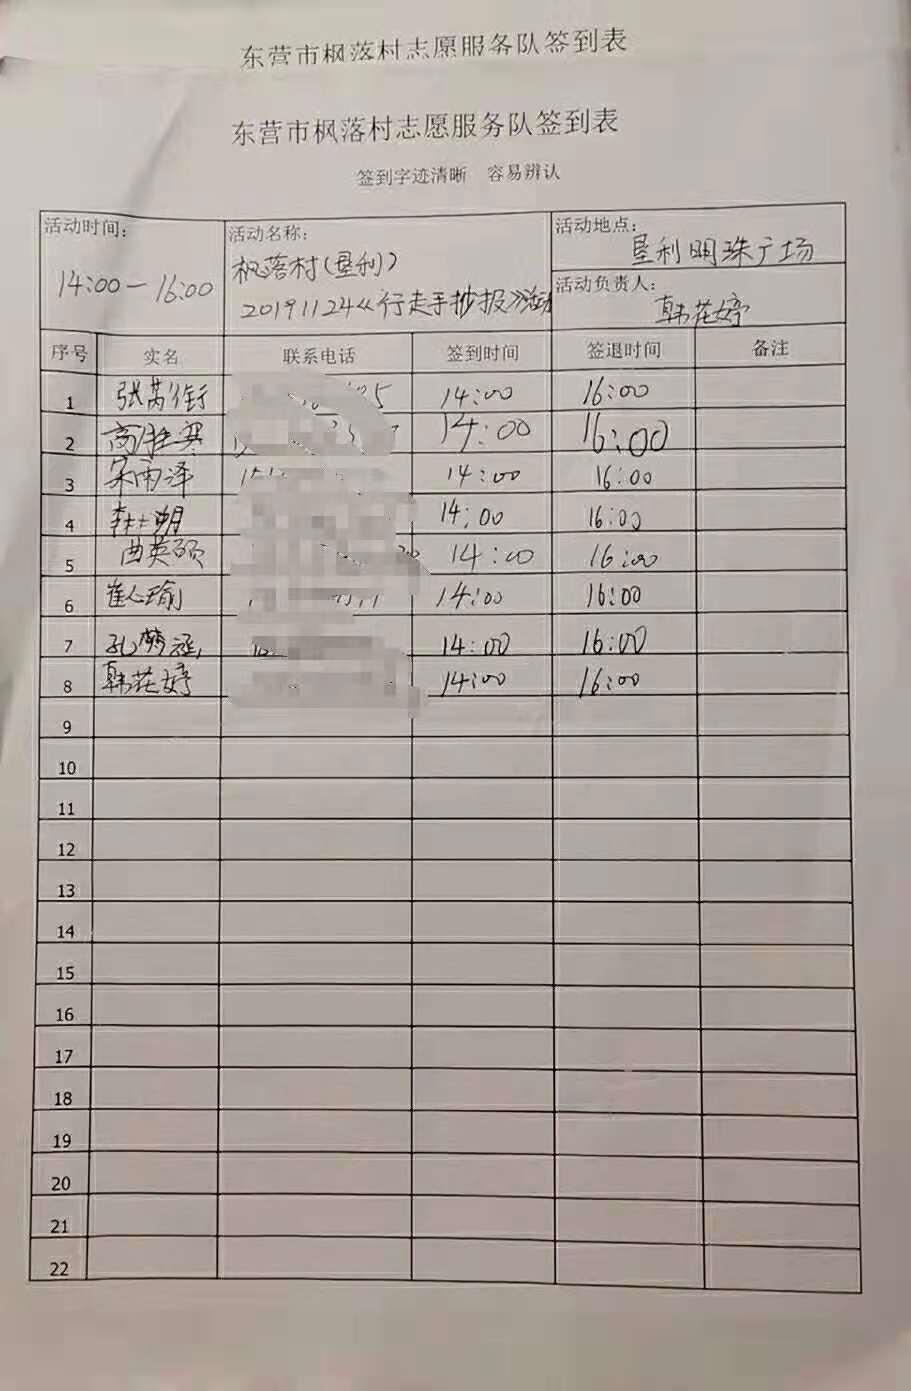 东营市枫落村志愿服务队签到表
东营市枫落村志愿服务队签到表
签到字迹清晰 容易辨认
活动时间: 活动名称: 活动地点:
14:00-16:00 枫落村(垦利) 垦利明珠广场
20191124《行走手抄报》活动 活动负责人:
韩花婷
序号 实名 联系电话 签到时间 签退时间 备注
1 张 14:00 16:00
2 高胜英 14:00 16:00
3 宋雨泽 14:00 16:00
4 14:00 16:00
5 曲英硕 14:00 16:00
6 崔心瑜 14:00 16:00
7 孔梦涵 14:00 16:00
8 韩花婷 14:00 16:00
9
10
11
12
13
14
15
16
17
18
19
20
21
22